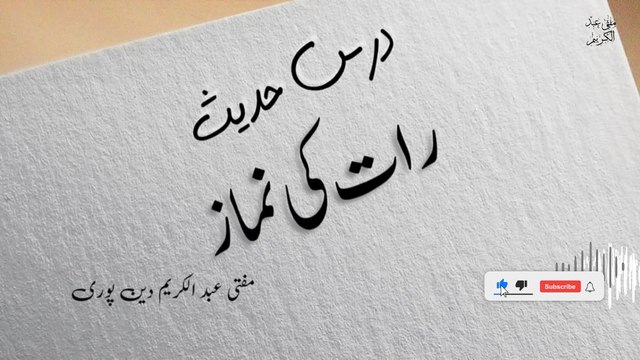 درس حدیث
رات کی نماز
مفتی عبد الکریم دین پوری
مفتی عبد
الکریم
Subscribe